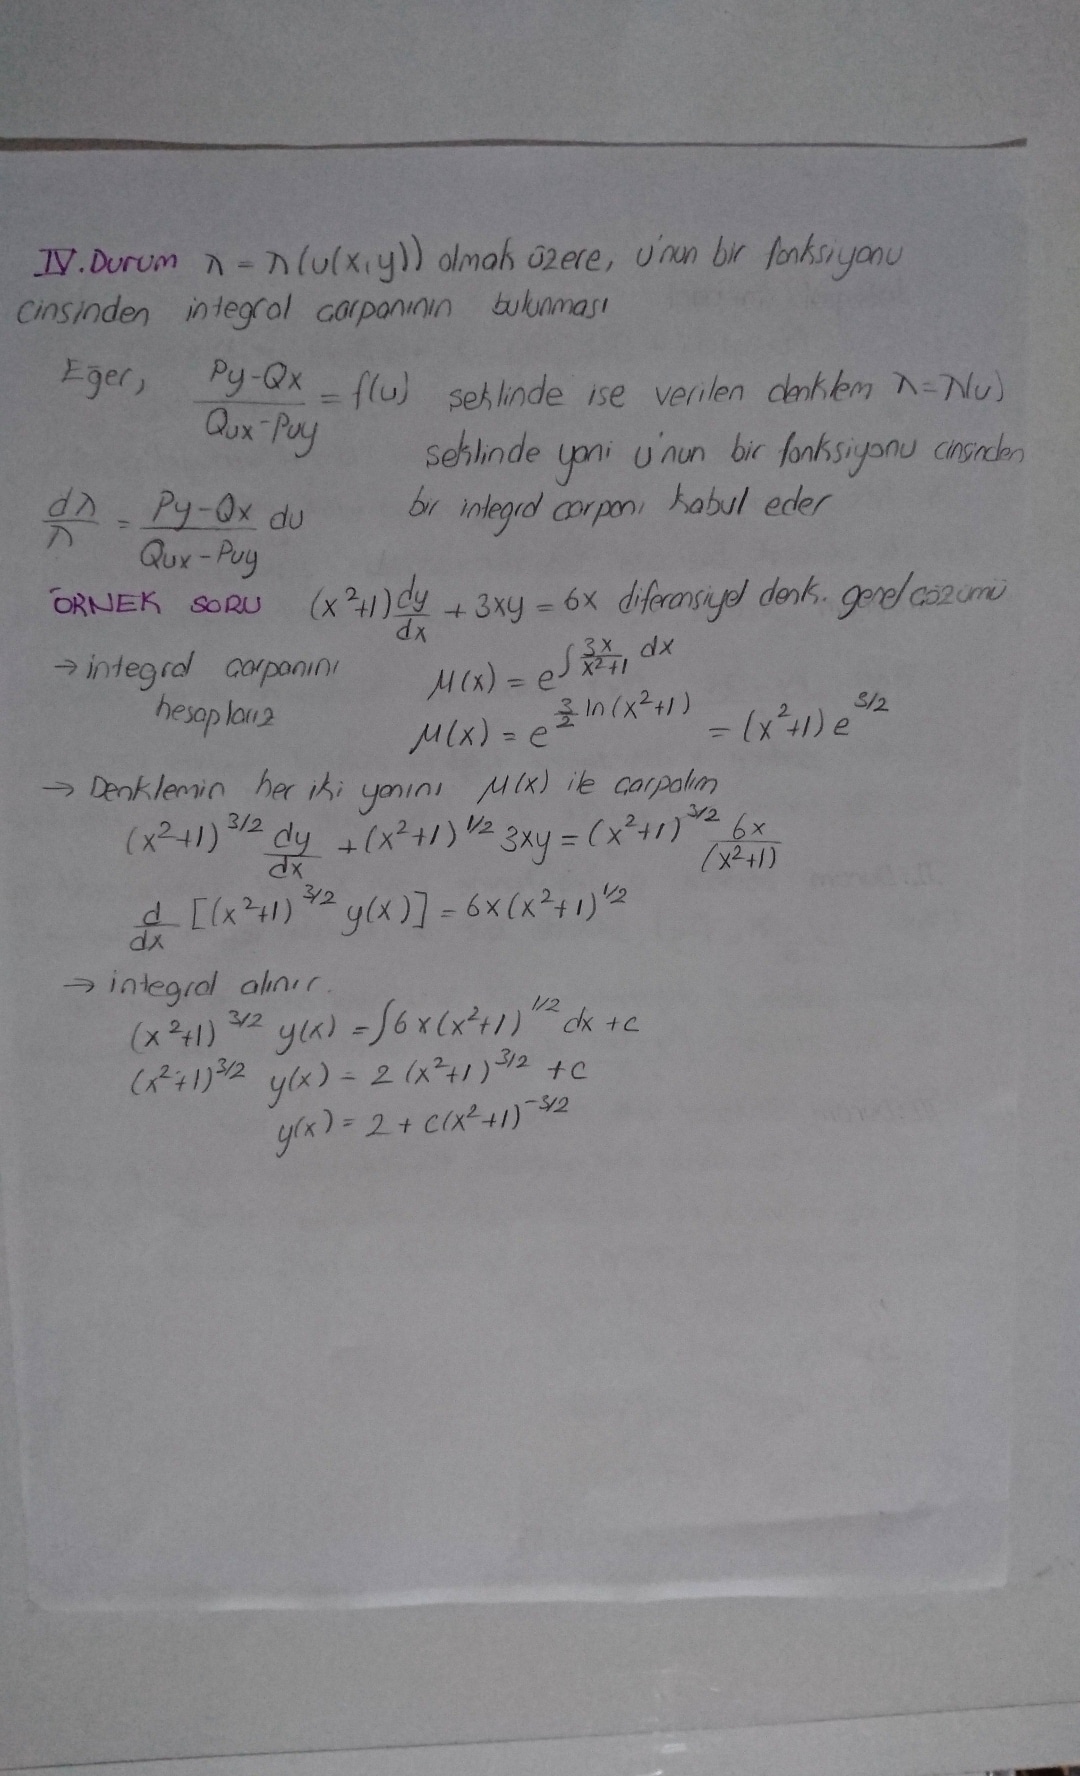 IV.Durum λ = λ(u(x,y)) olmak üzere, u'nun bir fonksiyonu
cinsinden integral carpanının bulunması
Eğer, Py-Qx / Qux-Puy = f(u) seklinde ise verilen denklem λ=λ(u)
seklinde yani u'nun bir fonksiyonu cinsinden
bir integral carpanı kabul eder
dλ/λ = Py-Qx / Qux-Puy du
ÖRNEK SORU (x²+1) dy/dx + 3xy = 6x diferansiyel denk. genel çözümü
→ integral carpanını μ(x) = e^∫ 3x/x²+1 dx
hesaplarız μ(x) = e^3/2 ln(x²+1) = (x²+1) e^3/2
→ Denklemin her iki yanını μ(x) ile çarpalım
(x²+1)^3/2 dy/dx + (x²+1)^1/2 3xy = (x²+1)^3/2 6x/(x²+1)
d/dx [(x²+1)^3/2 y(x)] = 6x(x²+1)^1/2
→ integral alınır.
(x²+1)^3/2 y(x) = ∫6x(x²+1)^1/2 dx +c
(x²+1)^3/2 y(x) = 2 (x²+1)^3/2 +c
y(x) = 2 + c(x²+1)^-3/2